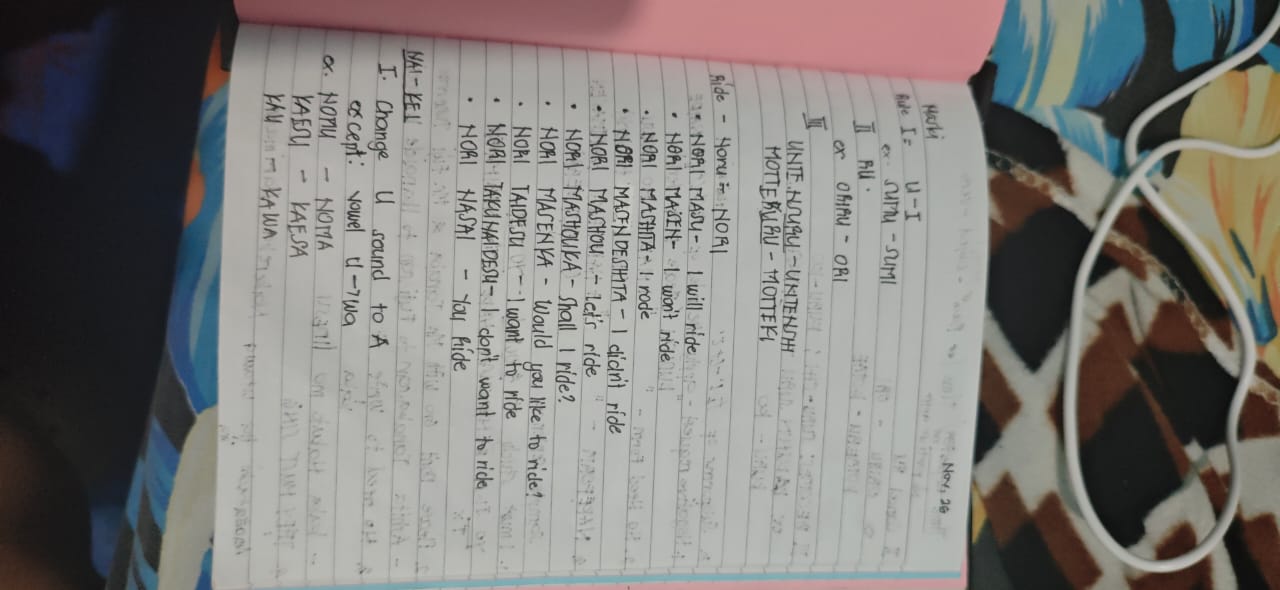 Nov, 26
Masu
Rule I = U - I
ex. SUMU - SUMI
II RU.
ex ORIRU - ORI
III
UNTENSURU - UNTENSHI
MOTTEKURU - MOTTEKI
Ride - Noru = NORI
• NORI MASU - I will ride
• NORI MASEN - I won't ride
• NORI MASHITA - I rode
• NORI MASENDESHITA - I didn't ride
• NORI MASHOU - Let's ride
• NORI MASHOUKA - Shall I ride?
• NORI MASENKA - Would you like to ride?
• NORI TAIDESU - I want to ride
• NORI TAKUNAIDESU - I don't want to ride
• NORI NASAI - You Ride
NAI - KEI
I. Change U sound to A
except: vowel U → wa
ex. NOMU - NOMA
KAESU - KAESA
KAU KAWA